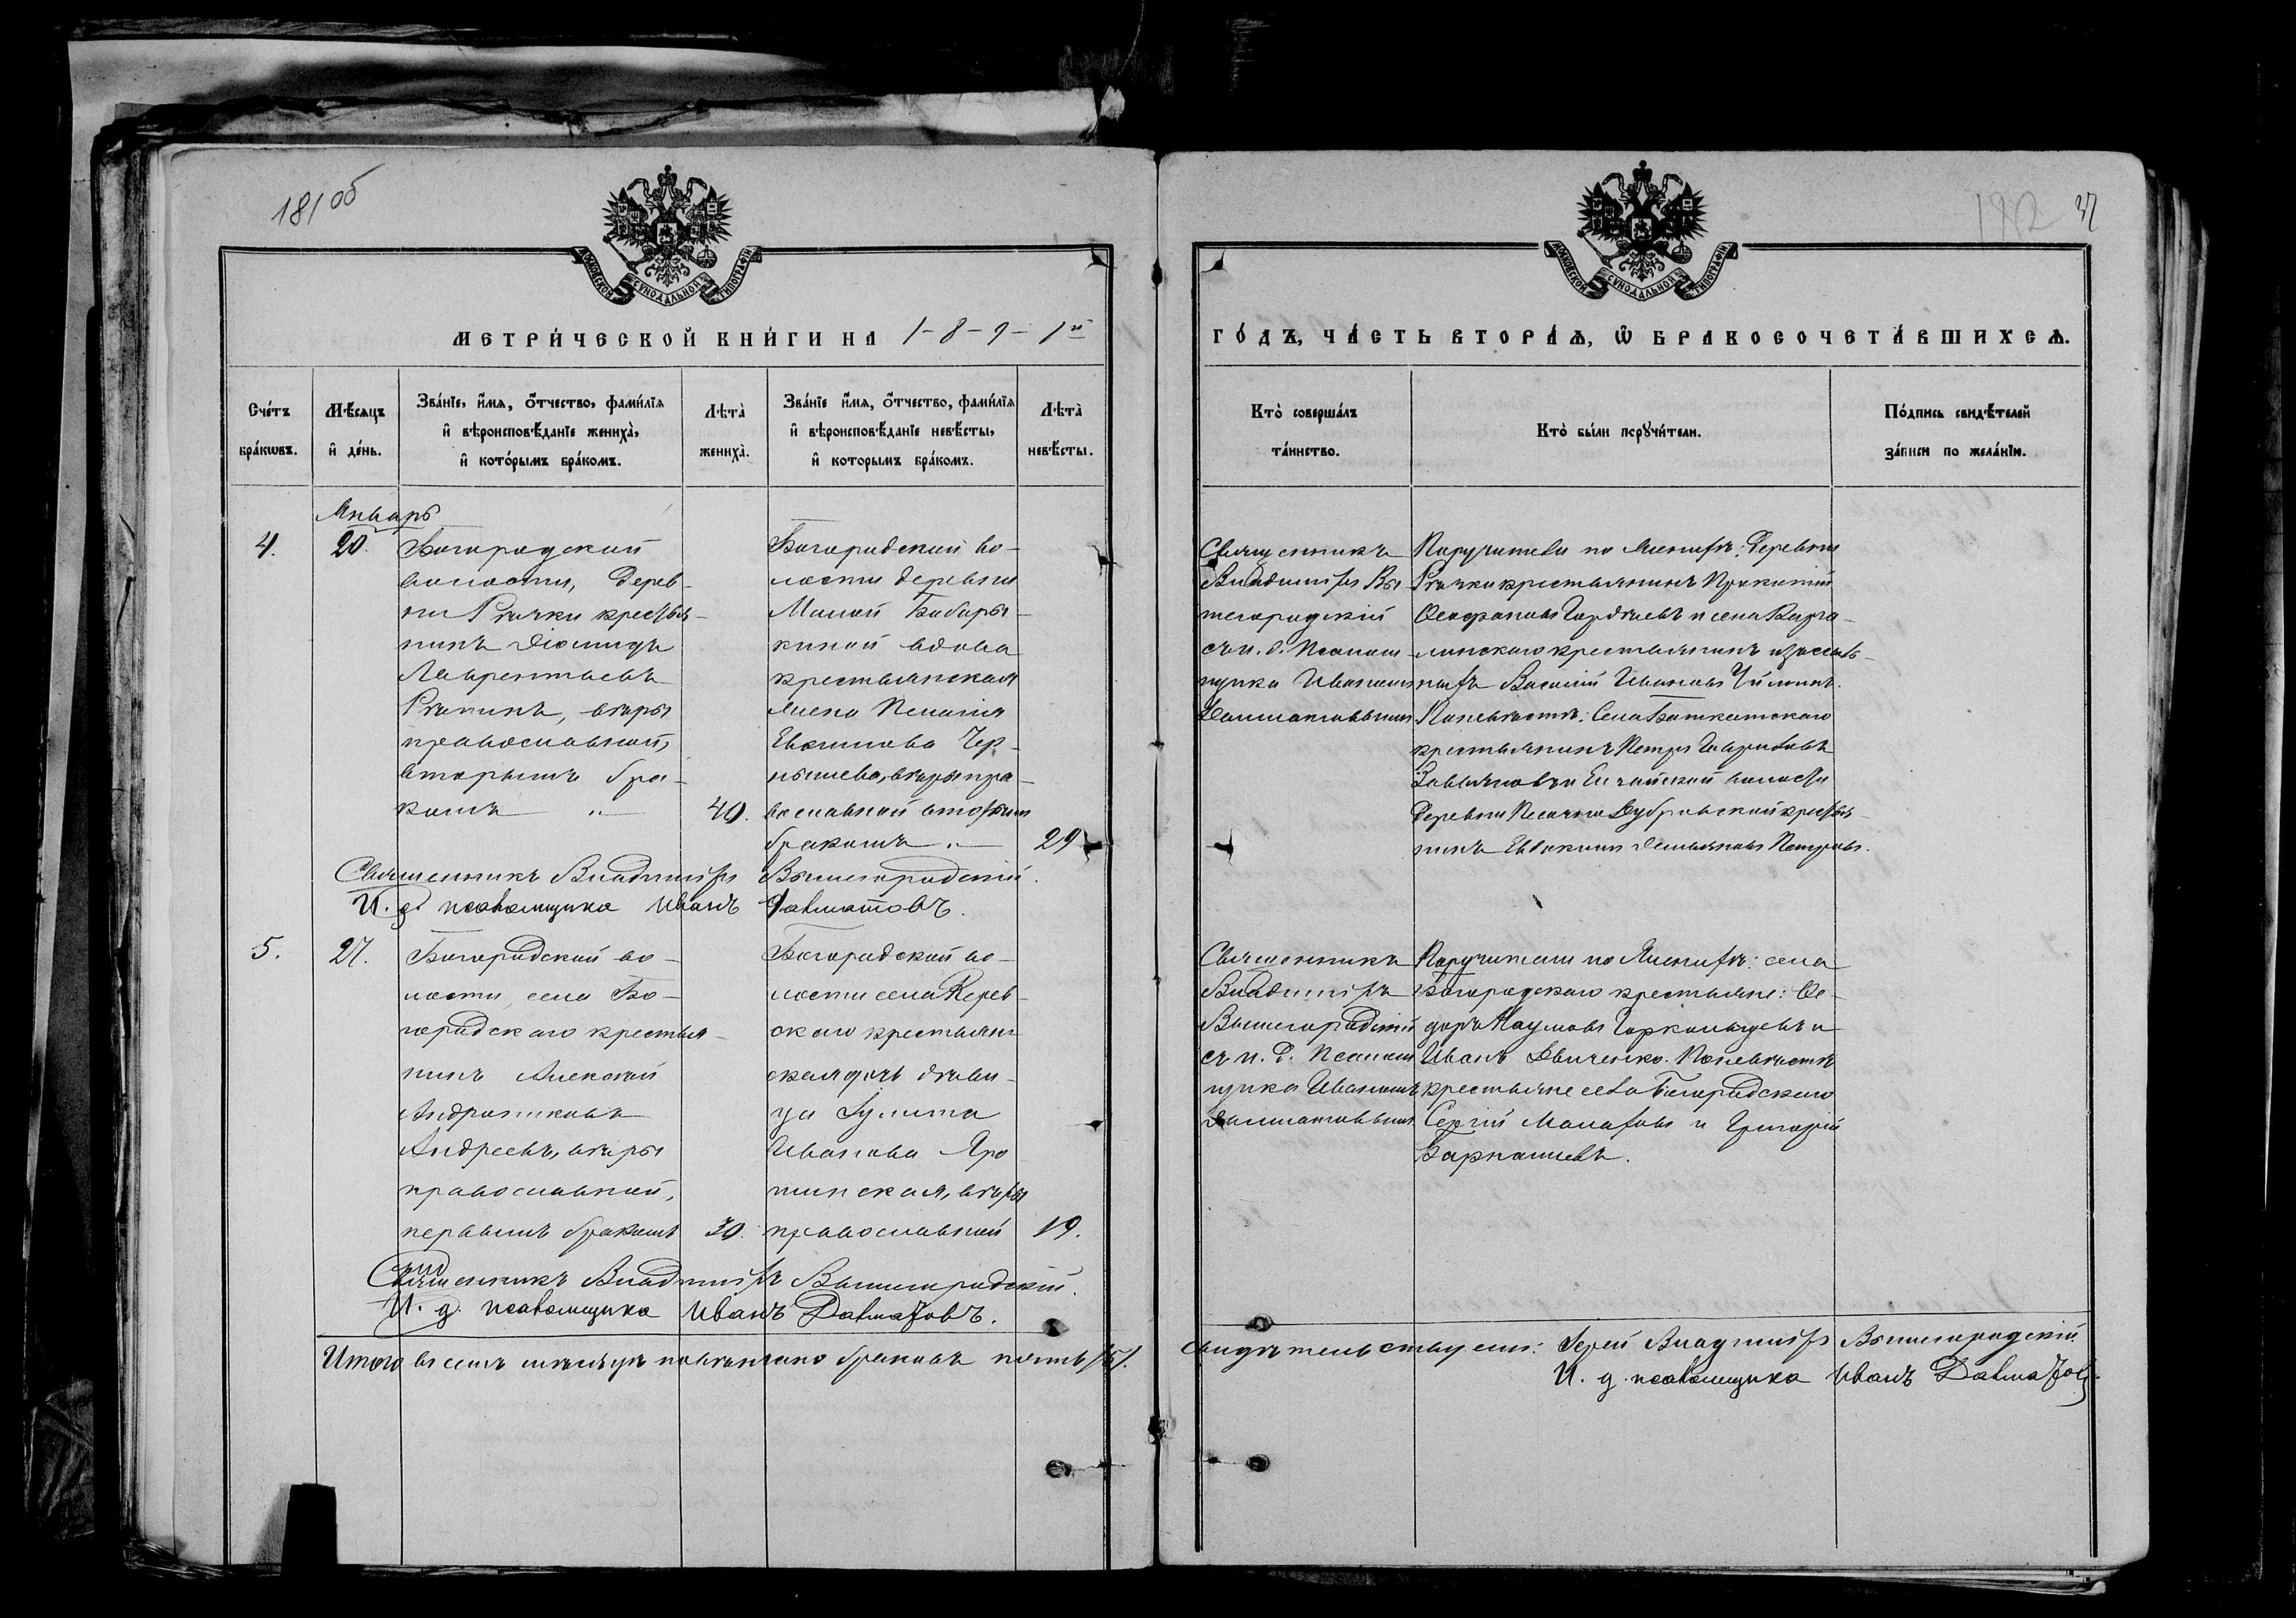 181 об
МОСКОВСКОЙ СѴНОДАЛЬНОЙ ТИПОГРАФІИ
МЕТРИ́ЧЕСКОЙ КНИ́ГИ НА 1-8-9-1й
Сче́тъ бра́кѡвъ.
Мѣ́сяцъ и҆ де́нь.
Зва́нїе, и҆́мѧ, ѻ҆́тчество, фами́лїѧ
и҆ вѣроисповѣ́данїе жениха̀,
и҆ кото́рымъ бра́комъ.
Лѣта̀ жениха̀.
Зва́нїе и҆́мѧ, ѻ҆́тчество, фами́лїѧ
и҆ вѣроисповѣ́данїе невѣ́сты,
и҆ которымъ бра́комъ.
Лѣта̀ невѣ́сты.
Январь
4.
20.
Богородской
волости, дерев-
ни Рѣчки крестья-
нинъ Діомидъ
Лаврентьевъ
Рѣкинъ, вѣры
православной,
вторымъ бра-
комъ "
40.
Богородской во-
лости деревни
Малой Бабары-
киной вдова
крестьянская
жена Пелагія
Евфимова Чер-
нышева, вѣры пра-
вославной вторымъ
бракомъ "
29
Священникъ Владиміръ Вышегородскій.
И. д. псаломщика Иванъ Далматовъ.
5.
27.
Богородской во-
лости, села Бо-
городскаго крестья-
нинъ Алексѣй
Андрониковъ
Андреевъ, вѣры
православной,
первымъ бракомъ
30.
Богородской во-
лости села Керев-
скаго крестьян-
ская дочь дѣви-
ца Іулита
Иванова
вѣры
православной
19.
Священникъ Владиміръ Вышегородскій.
И. д. псаломщика Иванъ Далматовъ.
Итого въ семъ мѣсяцѣ повѣнчано браковъ пять /5/.
182
37
МОСКОВСКОЙ СѴНОДАЛЬНОЙ ТИПОГРАФІИ
ГО́ДЪ, ЧА́СТЬ ВТОРА́Ѧ, Ѽ БРАКОСОЧЕТА́ВШИХСѦ.
Кто̀ соверша́лъ
та́инство.
Кто̀ бы́ли порꙋчи́тели.
По́дпись свидѣ́телей
за́писи по жела́нїю.
Священникъ
Владиміръ Вы
шегородскій
съ и. д. Псалом
щика Иваномъ
Далматовымъ
Поручители по женихѣ: деревни
Рѣчки крестьянинъ Прокопій
Ѳеофановъ Гордѣевъ и села Карга-
линскаго крестьянинъ изъ ссыль-
ныхъ Василій Ивановъ
По невѣстѣ: Села Баткатскаго
крестьянинъ Петръ Гавриловъ
Завьяловъ и Елгайской волости
деревни Песочно Дубровской крестья-
нинъ Евдокимъ Демьяновъ Петровъ.
Священникъ
Владиміръ
Вышегородскій
съ и. д. Псалом
щика Иваномъ
Далматовымъ
Поручители по женихѣ: села
Богородскаго крестьяне: Ѳе-
доръ Наумовъ Горкольцевъ и
Иванъ По невѣстѣ
крестьяне села Богородскаго
Сергій Малаховъ и Григорій
Свидѣтельствуемъ: Іерей Владиміръ Вышегородскій
И. д. псаломщика Иванъ Далматовъ